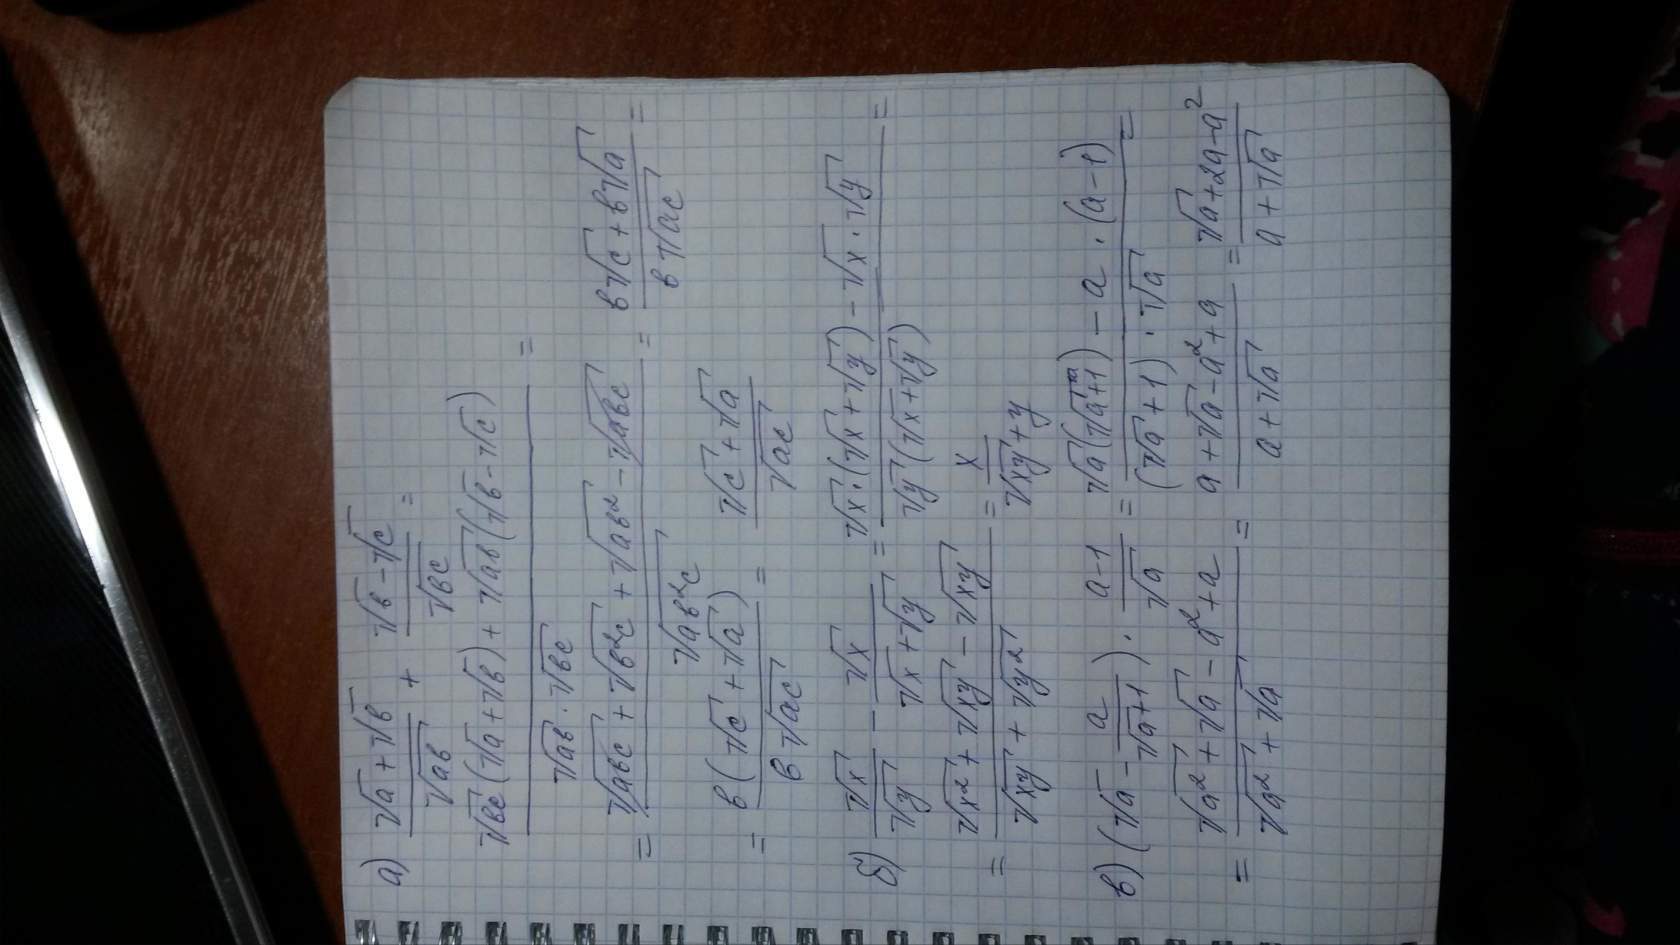 а) (√a + √b)/√(ab) + (√b - √c)/√(bc) =
(√(bc)(√a + √b) + √(ab)(√b - √c))/(√(ab) · √(bc)) =
= (√(abc) + √(b²c) + √(ab²) - √(abc))/√(ab²c) = (b√c + b√a)/(b√(ac)) =
= b(√c + √a)/(b√(ac)) = (√c + √a)/√(ac)
б) √x/√y - √x/(√x + √y) = (√x · (√x + √y) - √x · √y)/(√y(√x + √y)) =
= (√x² + √(xy) - √(xy))/(√(xy) + √y²) = x/(√(xy) + y)
в) (√a - a/(√a + 1)) · (a - 1)/√a = (√a(√a + 1) - a · (a - 1))/((√a + 1) · √a) =
= (√a² + √a - a² + a)/(√a² + √a) = (a + √a - a² + a)/(a + √a) = (√a + 2a - a²)/(a + √a)